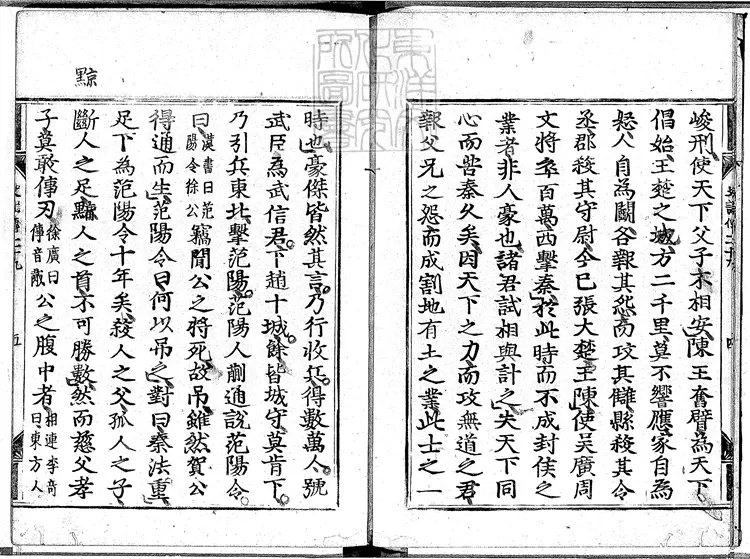 峻刑使天下父子不相安陳王奮臂為天下
倡始王楚之城方二千里莫不響應家自為
怒人自為鬬各報其怨而攻其讎縣殺其令
丞郡殺其守尉今已張大楚王陳使吳廣周
文將卒百萬西擊秦於此時而不成封侯之
業者非人豪也諸君試相與計之夫天下同
心而苦秦久矣因天下之力而攻無道之君
報父兄之怨而成割地有土之業此士之一
時也豪傑皆然其言乃行收兵得數萬人號
武臣為武信君下趙十城餘皆城守莫肯下
乃引兵東北擊范陽范陽人蒯通說范陽令
曰漢書曰范陽令徐公竊聞公之將死故吊雖然賀公
得通而生范陽令曰何以吊之對曰秦法重
足下為范陽令十年矣殺人之父孤人之子
斷人之足黥人之首不可勝數然而慈父孝
子莫敢傳刃徐廣曰傳音胾公之腹中者相連李奇曰東方人
黥
四
五